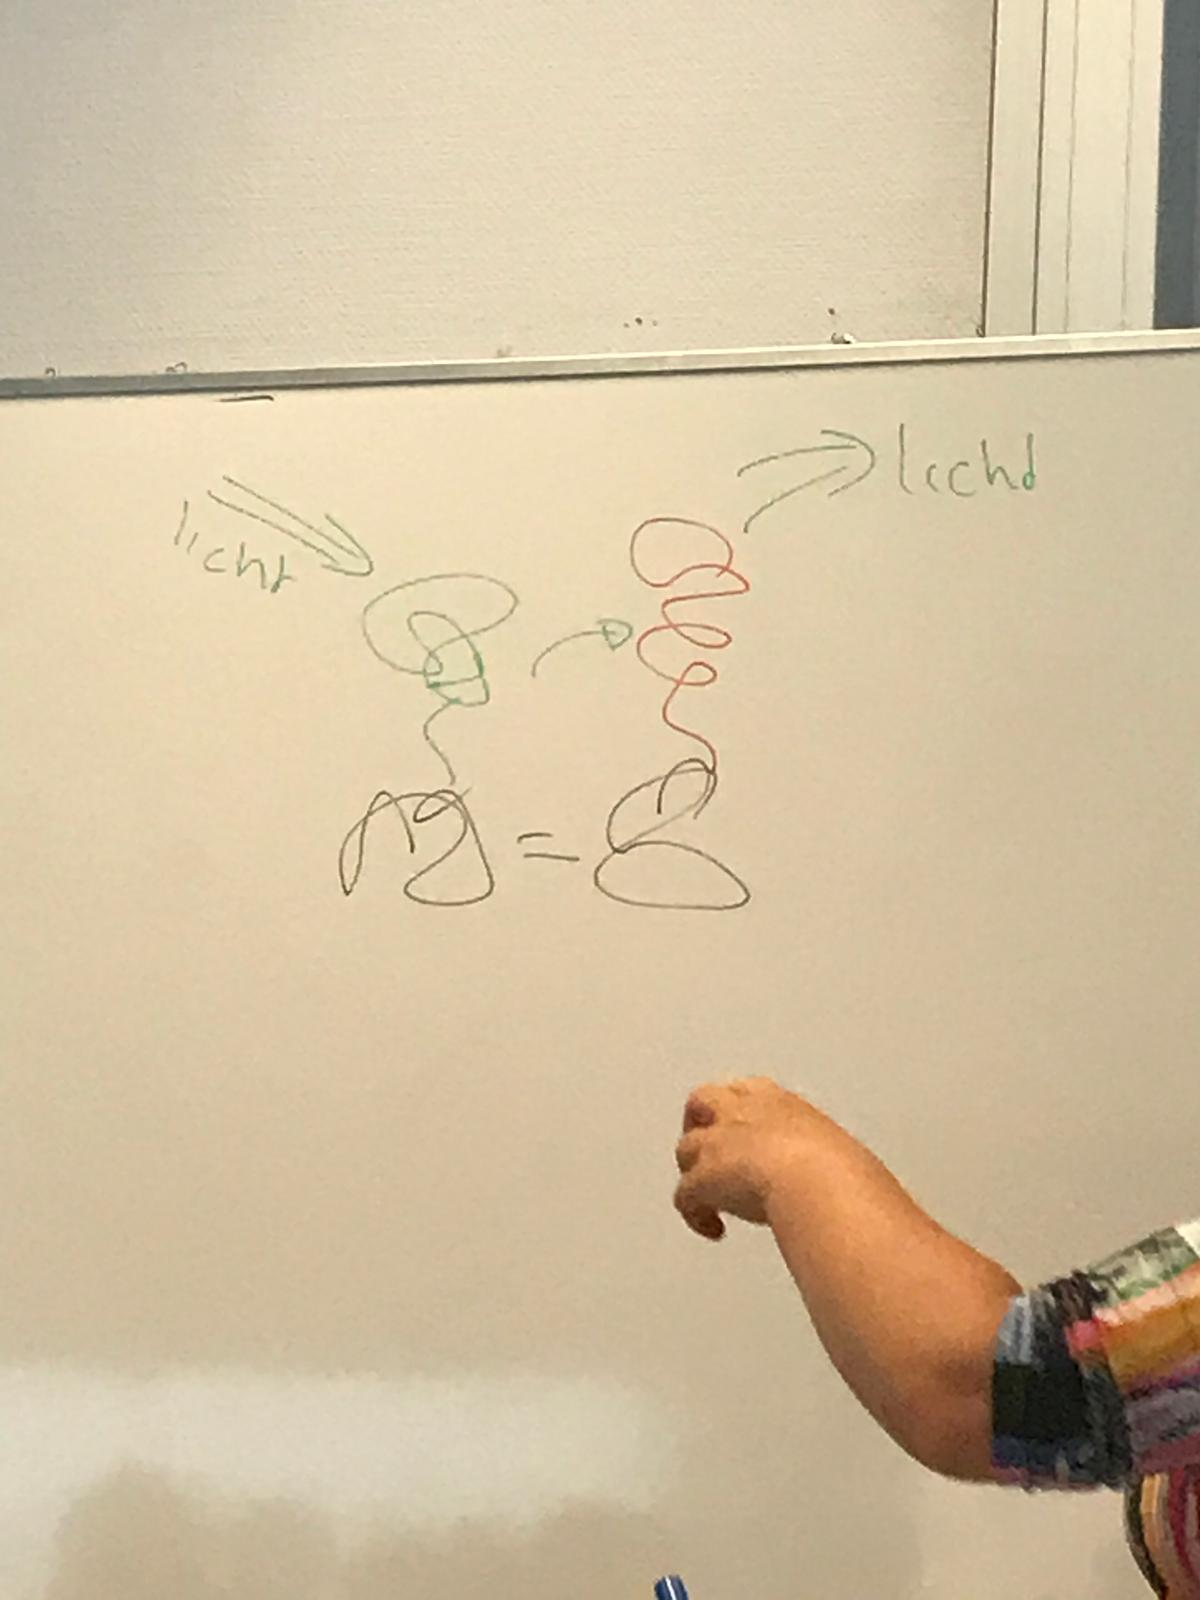 licht
licht
=